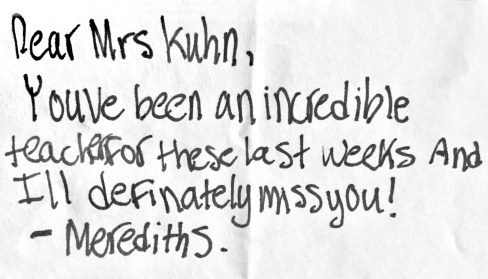 Dear Mrs Kuhn,
Youve been an incredible
teacher for these last weeks And
I'll definately miss you!
- Meredith S.